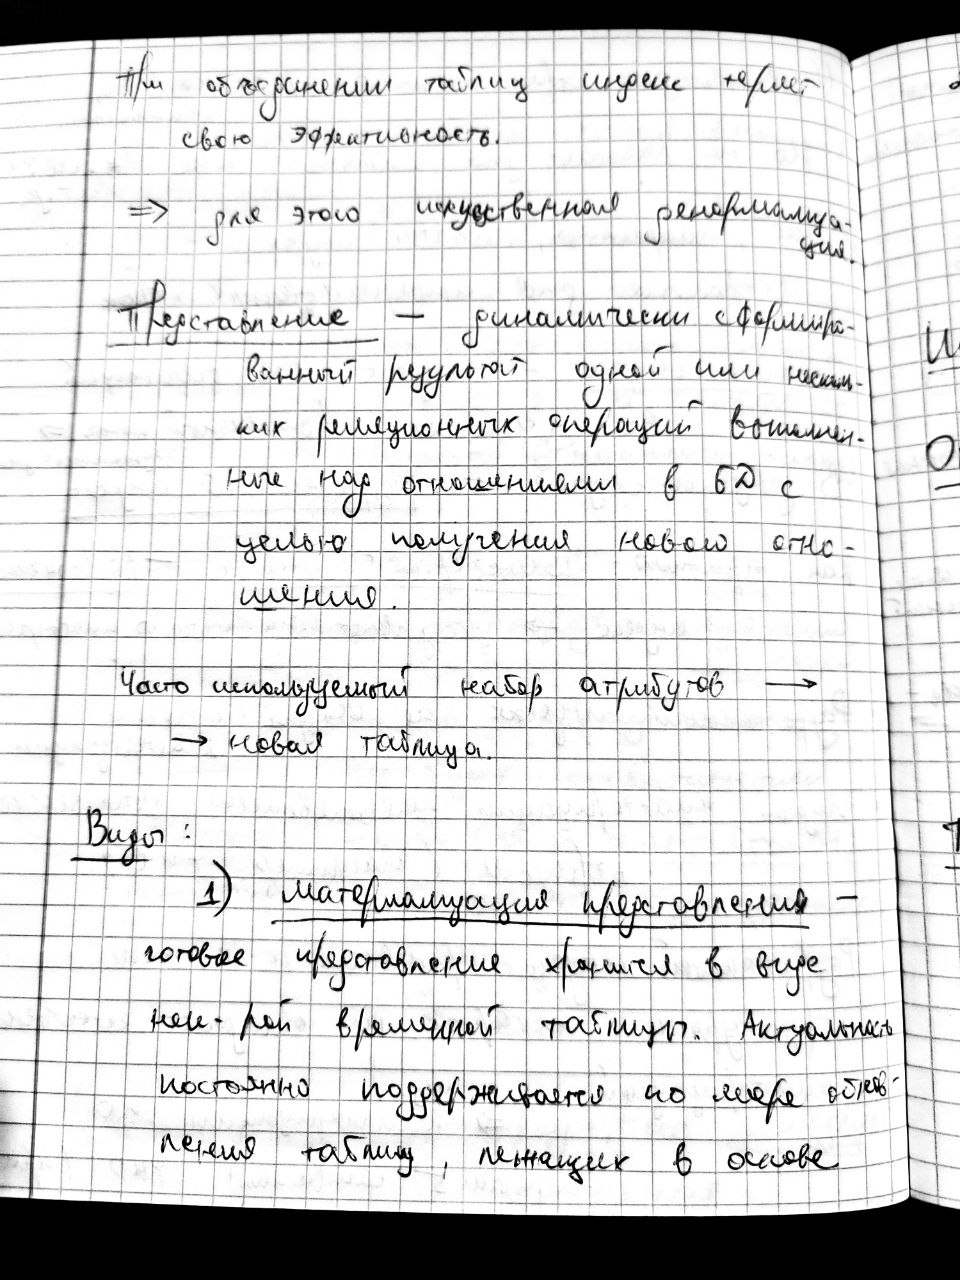 При объединении таблиц индекс теряет
свою эффективность.
=> для этого искусственная денормализа-
ция.
Представление — динамически сформиро-
ванный результат одной или несколь-
ких реляционных операций выполнен-
ные над отношениями в БД с
целью получения нового отно-
шения.
Часто используемый набор атрибутов →
→ новая таблица.
Виды:
1) материализация представления —
готовое представление хранится в виде
нек-рой временной таблицы. Актуальность
постоянно поддерживается по мере обнов-
ления таблиц, лежащих в основе